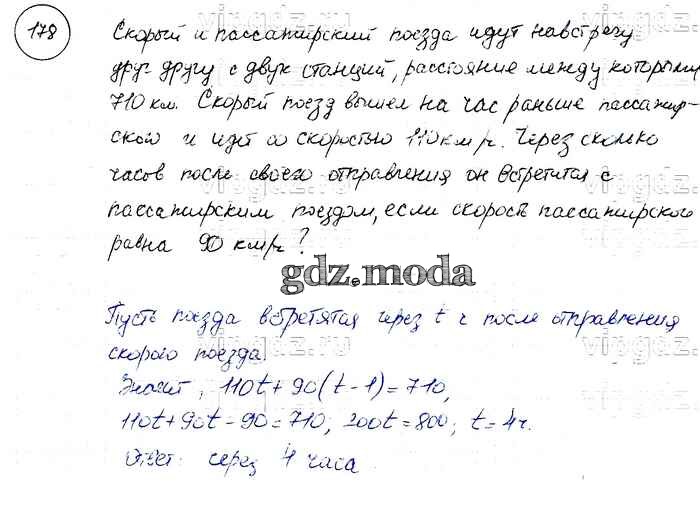 178
Скорый и пассажирский поезда идут навстречу
друг другу с двух станций, расстояние между которыми
710 км. Скорый поезд вышел на час раньше пассажир-
ского и идет со скоростью 110 км/ч. Через сколько
часов после своего отправления он встретится с
пассажирским поездом, если скорость пассажирского
равна 90 км/ч?
gdz.moda
Пусть поезда встретятся через t ч после отправления
скорого поезда
Значит, 110t + 90(t - 1) = 710,
110t + 90t - 90 = 710; 200t = 800; t = 4ч.
Ответ: через 4 часа